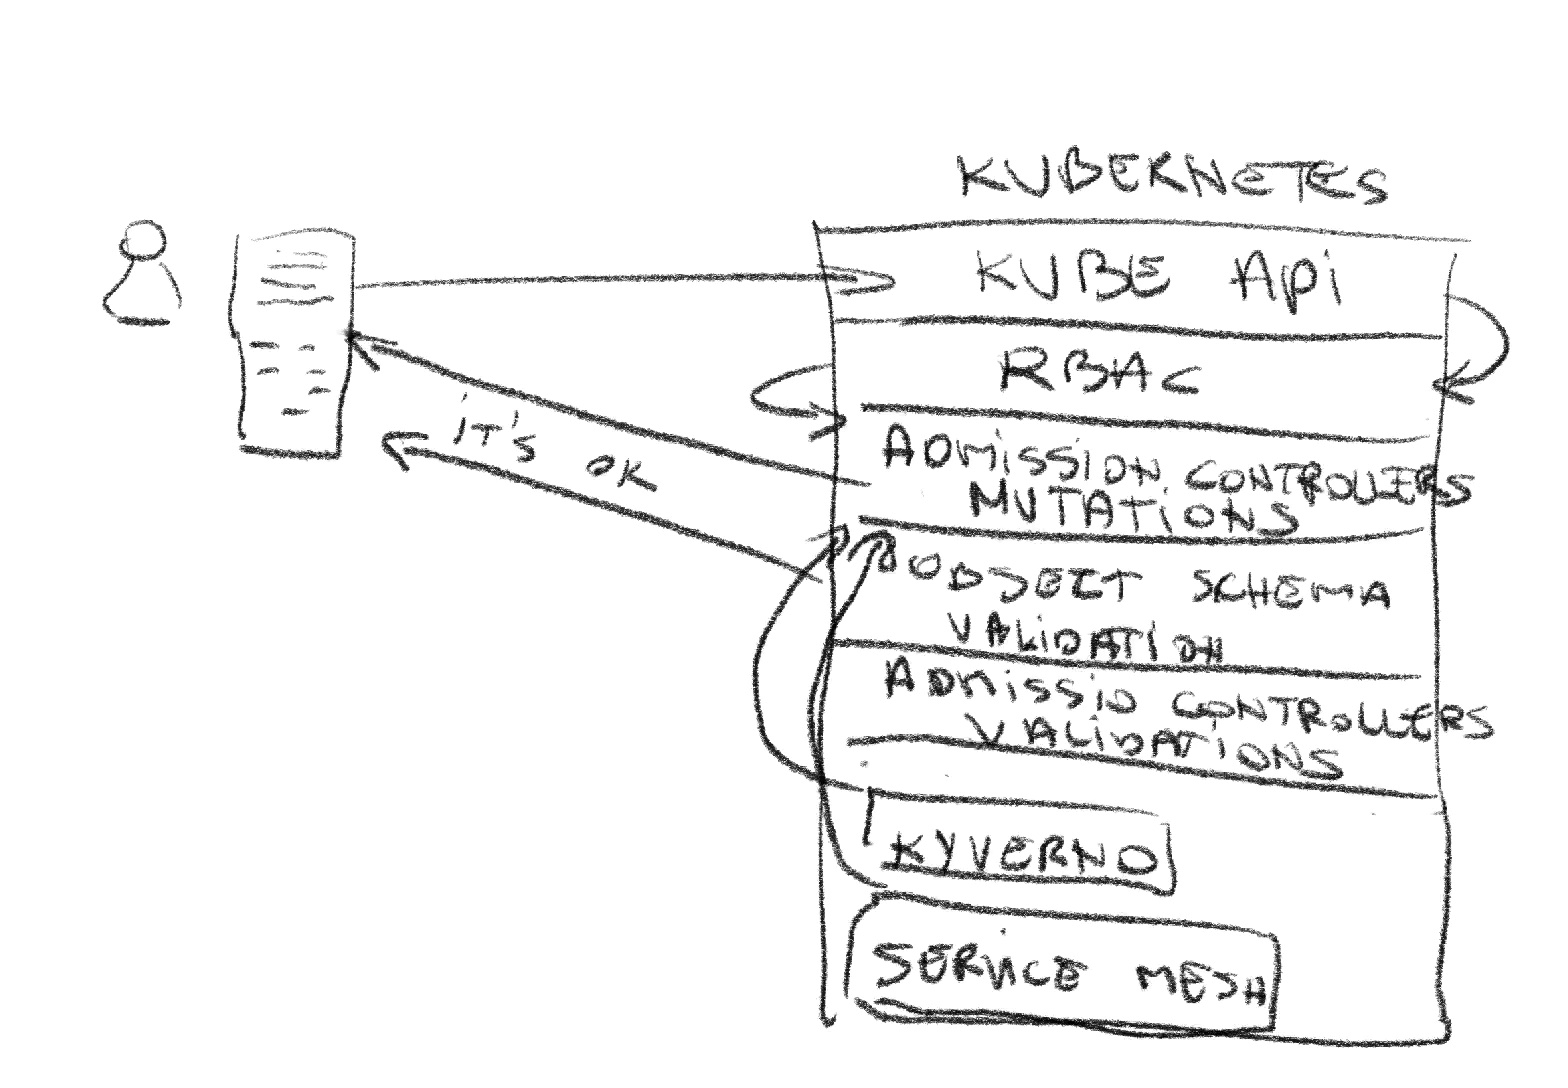 KUBERNETES
KUBE Api
RBAC
ADMISSION CONTROLLERS
MUTATIONS
iT'S OK
OBJECT SCHEMA
VALIDATION
ADMISSIO CONTROLLERS
VALIDATIONS
KYVERNO
SERVICE MESH